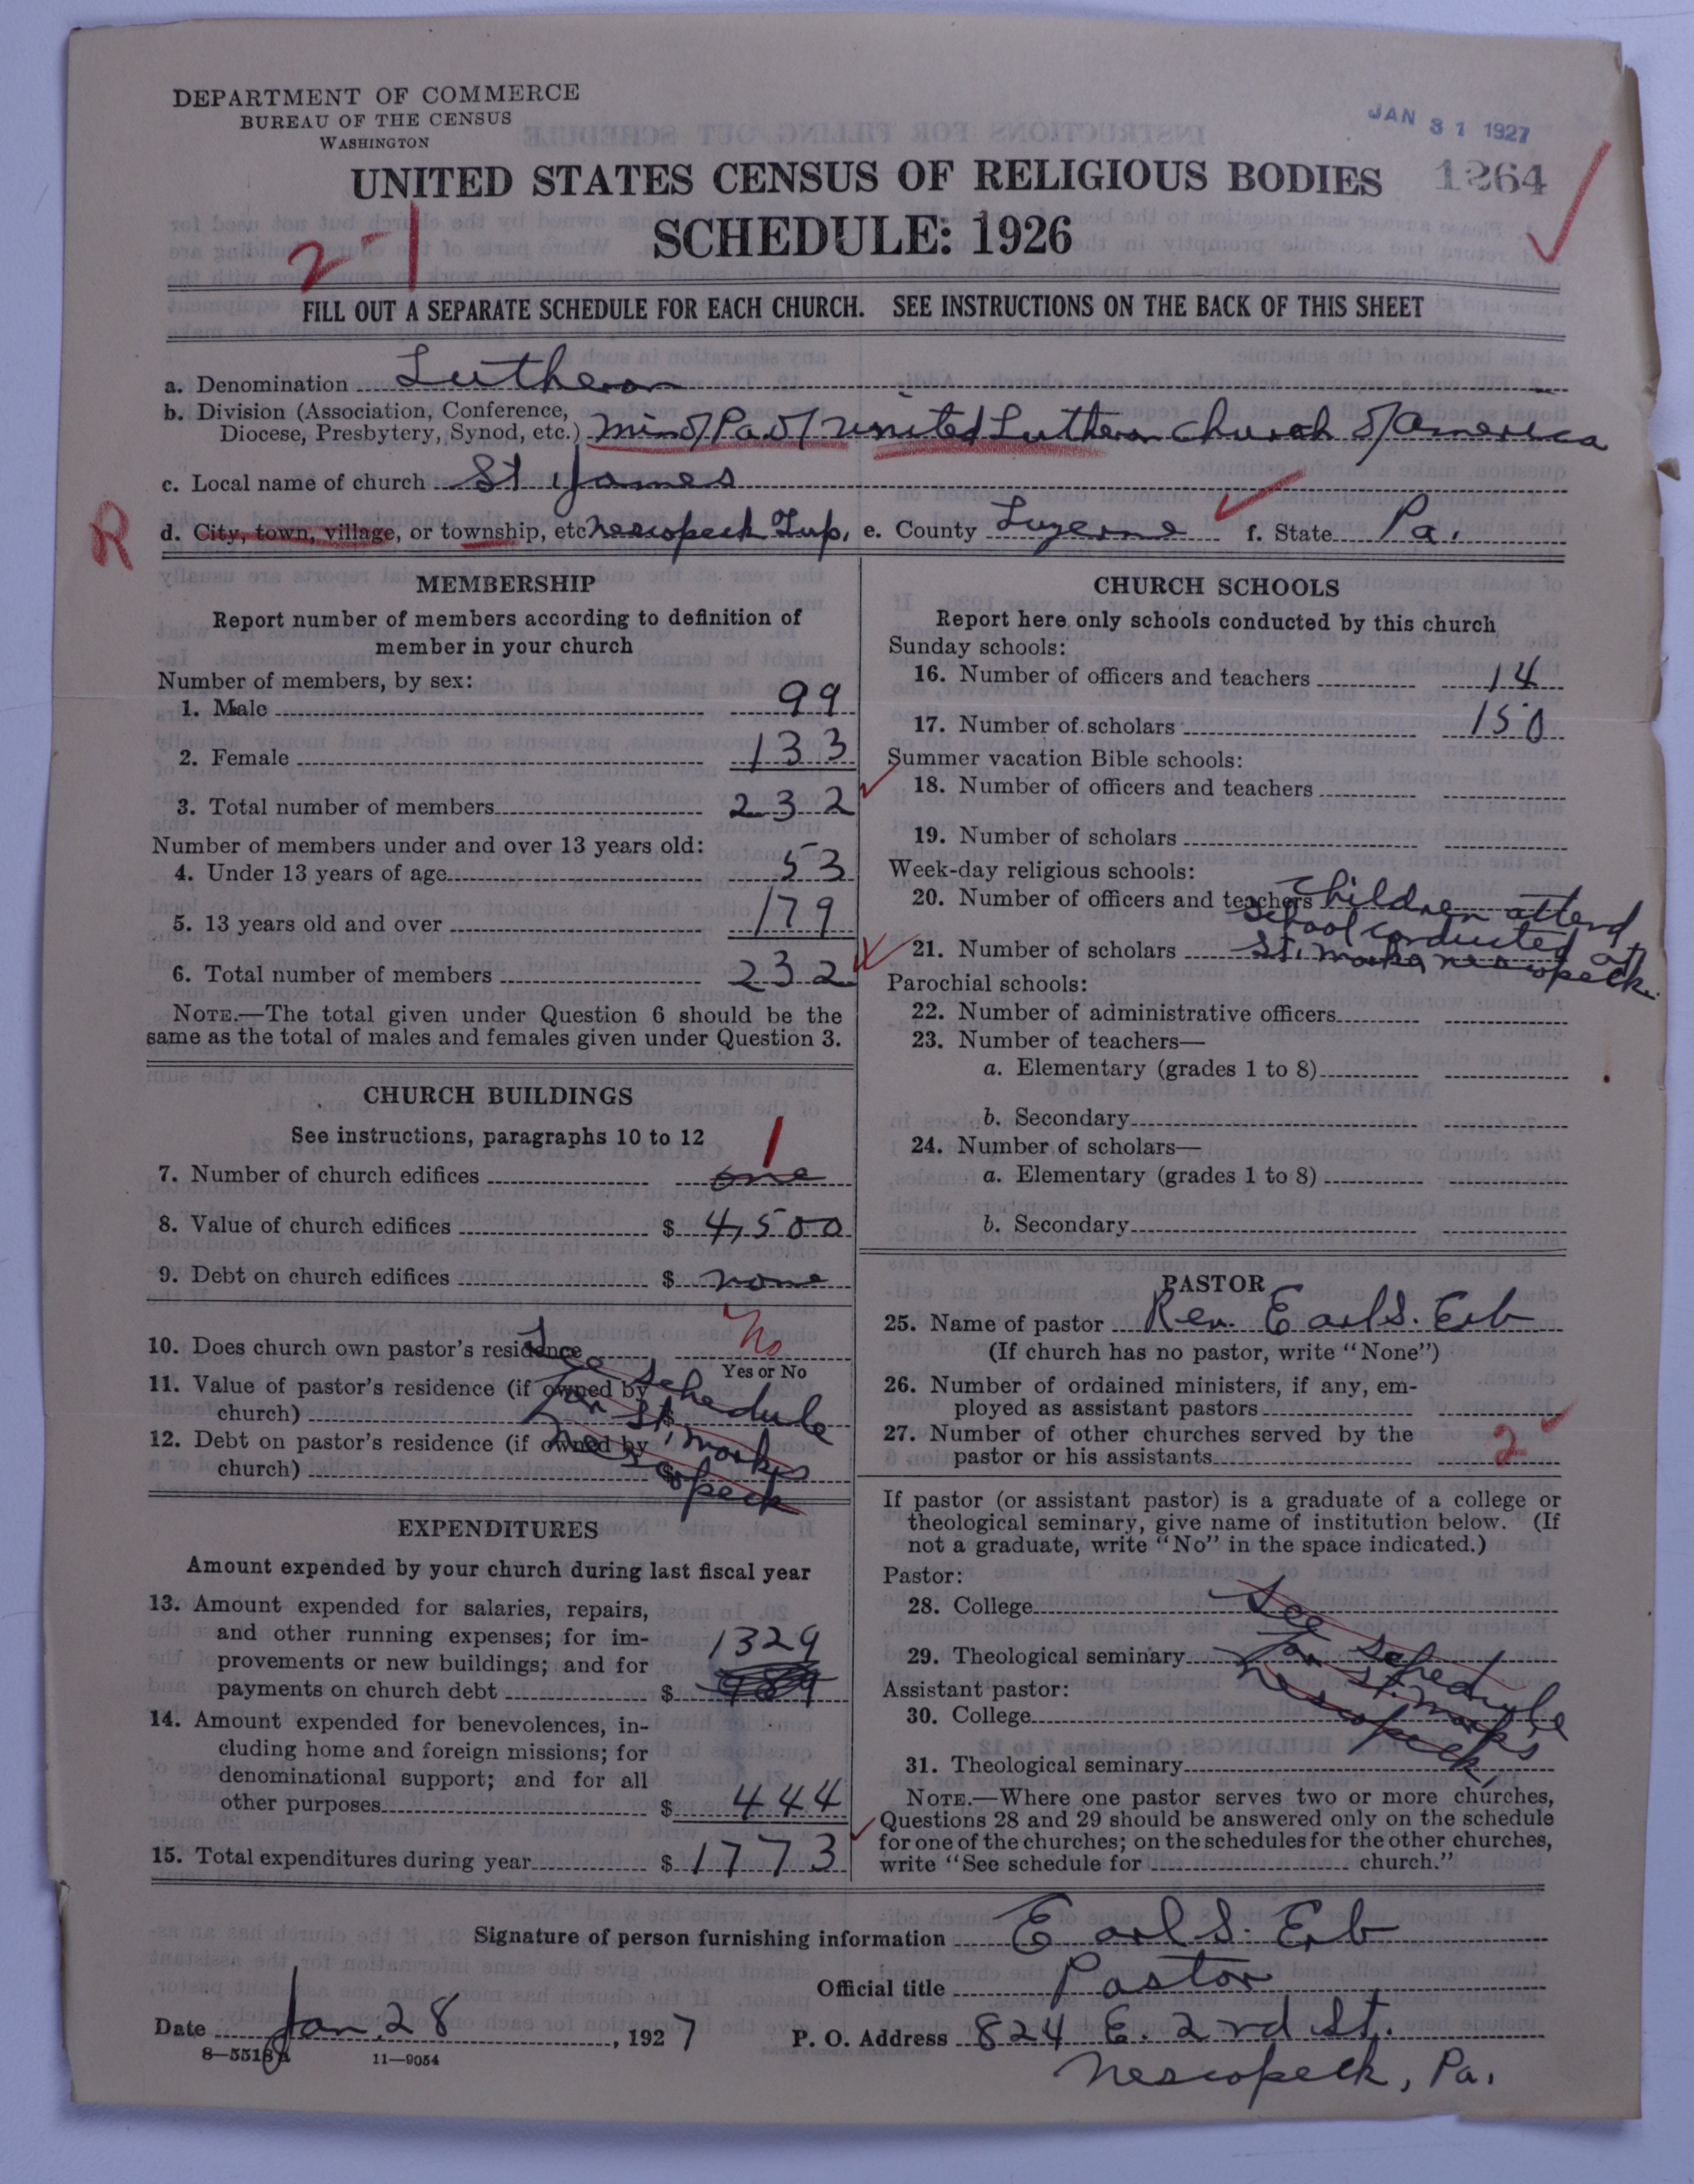 DEPARTMENT OF COMMERCE
BUREAU OF THE CENSUS
WASHINGTON
JAN 31 1927
UNITED STATES CENSUS OF RELIGIOUS BODIES 1264
SCHEDULE: 1926
2-1
FILL OUT A SEPARATE SCHEDULE FOR EACH CHURCH. SEE INSTRUCTIONS ON THE BACK OF THIS SHEET
a. Denomination Lutheran
b. Division (Association, Conference,
Diocese, Presbytery, Synod, etc.) Min of Pa of United Lutheran Church of America
c. Local name of church St James
R
d. City, town, village, or township, etc Nescopeck Twp. e. County Luzerne f. State Pa.
MEMBERSHIP
Report number of members according to definition of
member in your church
Number of members, by sex:
1. Male 99
2. Female 133
3. Total number of members 232
Number of members under and over 13 years old:
4. Under 13 years of age 53
5. 13 years old and over 179
6. Total number of members 232
NOTE.—The total given under Question 6 should be the
same as the total of males and females given under Question 3.
CHURCH BUILDINGS
See instructions, paragraphs 10 to 12
1
7. Number of church edifices one
8. Value of church edifices $ 4,500
9. Debt on church edifices $ none
10. Does church own pastor's residence No
Yes or No
11. Value of pastor's residence (if owned by
church) $
12. Debt on pastor's residence (if owned by
church) $
See schedule
for St. Marks
Nescopeck
EXPENDITURES
Amount expended by your church during last fiscal year
13. Amount expended for salaries, repairs,
and other running expenses; for im-
provements or new buildings; and for
payments on church debt $ 1329
14. Amount expended for benevolences, in-
cluding home and foreign missions; for
denominational support; and for all
other purposes $ 444
15. Total expenditures during year $ 1773
CHURCH SCHOOLS
Report here only schools conducted by this church
Sunday schools:
16. Number of officers and teachers 14
17. Number of scholars 150
Summer vacation Bible schools:
18. Number of officers and teachers
19. Number of scholars
Week-day religious schools:
20. Number of officers and teachers
21. Number of scholars
Children attend
school conducted at
St. Marks Nescopeck.
Parochial schools:
22. Number of administrative officers
23. Number of teachers—
a. Elementary (grades 1 to 8)
b. Secondary
24. Number of scholars—
a. Elementary (grades 1 to 8)
b. Secondary
PASTOR
25. Name of pastor Rev. Earl S. Erb
(If church has no pastor, write "None")
26. Number of ordained ministers, if any, em-
ployed as assistant pastors
27. Number of other churches served by the
pastor or his assistants 2
If pastor (or assistant pastor) is a graduate of a college or
theological seminary, give name of institution below. (If
not a graduate, write "No" in the space indicated.)
Pastor:
28. College
29. Theological seminary
Assistant pastor:
30. College
31. Theological seminary
See schedule
for St. Mark's
Nescopeck,
NOTE.—Where one pastor serves two or more churches,
Questions 28 and 29 should be answered only on the schedule
for one of the churches; on the schedules for the other churches,
write "See schedule for church."
Signature of person furnishing information Earl S. Erb
Official title Pastor
Date Jan. 28, 1927 P. O. Address 824 E. 2nd St.
8—5518a 11—9054
Nescopeck, Pa.